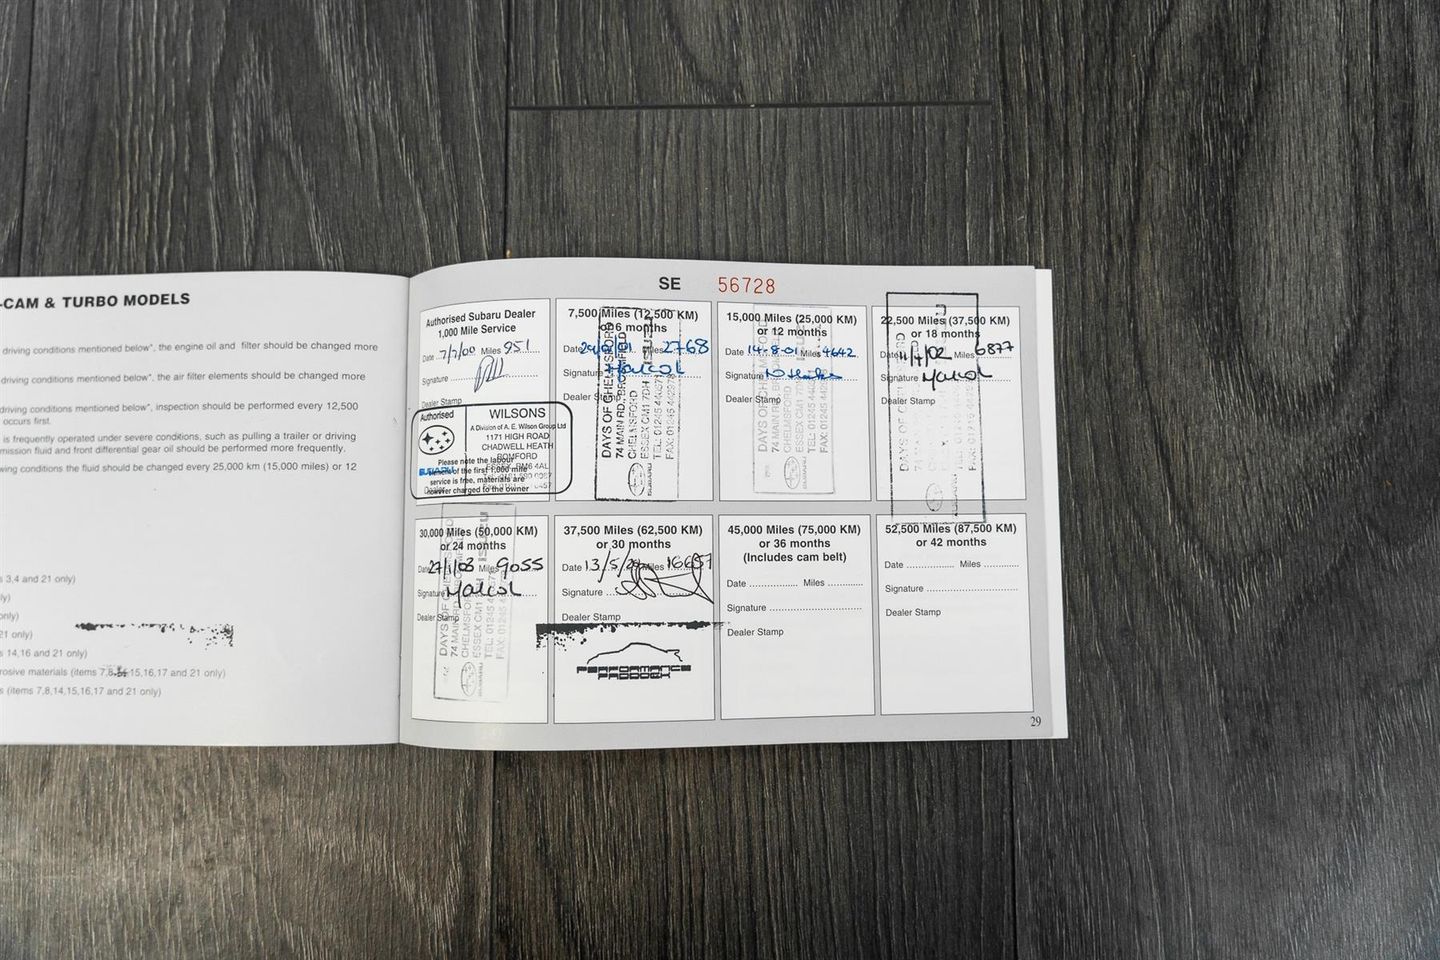 -CAM & TURBO MODELS
driving conditions mentioned below*, the engine oil and filter should be changed more
driving conditions mentioned below*, the air filter elements should be changed more
driving conditions mentioned below*, inspection should be performed every 12,500
occurs first.
is frequently operated under severe conditions, such as pulling a trailer or driving
mission fluid and front differential gear oil should be performed more frequently.
wing conditions the fluid should be changed every 25,000 km (15,000 miles) or 12
s 3,4 and 21 only)
ly)
only)
21 only)
14,16 and 21 only)
rosive materials (items 7,8,14,15,16,17 and 21 only)
s (items 7,8,14,15,16,17 and 21 only)
SE 56728
Authorised Subaru Dealer
1,000 Mile Service
Date 7/7/00 Miles 951
Signature
Dealer Stamp
Authorised
SUBARU
Dealer
WILSONS
A Division of A. E. Wilson Group Ltd
1171 HIGH ROAD
CHADWELL HEATH
ROMFORD
ESSEX RM6 4AL
Please note the labour
element of the first 1,000 mile
service is free, materials are
however charged to the owner
7,500 Miles (12,500 KM)
or 6 months
Date Miles 2768
Signature Malcol
Dealer Stamp
DAYS OF CHELMSFORD
74 MAIN RD, BROOMFIELD
CHELMSFORD
ESSEX CM1 7DH
TEL: 01245
FAX: 01245
SUBARU
ISUZU
15,000 Miles (25,000 KM)
or 12 months
Date 14-8-01 Miles 4642
Signature
Dealer Stamp
DAYS OF CHELMSFORD
74 MAIN RD
CHELMSFORD
ESSEX CM1 7DH
22,500 Miles (37,500 KM)
or 18 months
Date 11/7/02 Miles 6877
Signature Malcol
Dealer Stamp
DAYS OF
30,000 Miles (50,000 KM)
or 24 months
Date 27/1/03 Miles 9055
Signature Malcol
Dealer Stamp
DAYS OF CHELMSFORD
74 MAIN
CHELMSFORD
ESSEX CM1 7DH
TEL: 01245
FAX: 01245
SUBARU
ISUZU
37,500 Miles (62,500 KM)
or 30 months
Date 13/5/24 Miles 16657
Signature
Dealer Stamp
PERFORMANCE
PADDOCK
45,000 Miles (75,000 KM)
or 36 months
(Includes cam belt)
Date Miles
Signature
Dealer Stamp
52,500 Miles (87,500 KM)
or 42 months
Date Miles
Signature
Dealer Stamp
29